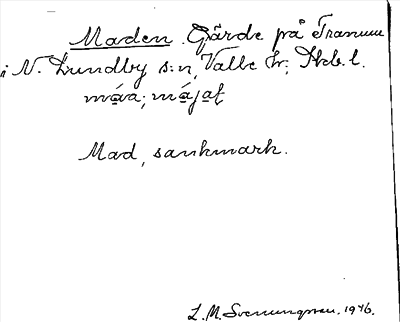 Maden. Gärde på Tranum
i N. Lundby s:n, Valle hr; Skb. l.
måa; måjat
Mad, sankmark.
L. M. Svenungsson. 1946.